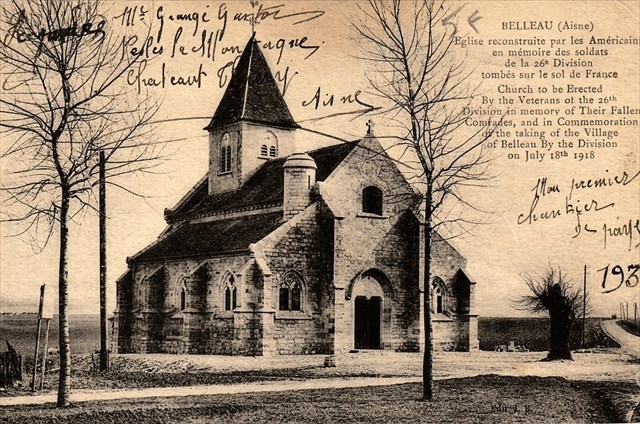 Mr Grangé Gaston
Château Thierry
Aisne
BELLEAU (Aisne)
Eglise reconstruite par les Américains
en mémoire des soldats
de la 26e Division
tombés sur le sol de France
Church to be Erected
By the Veterans ot the 26th
Division in memory of Their Fallen
Comrades, and in Commemoration
of the taking of the Village
of Belleau By the Division
on July 18th 1918
Mon premier
chantier
de
193
Edit. J. R.